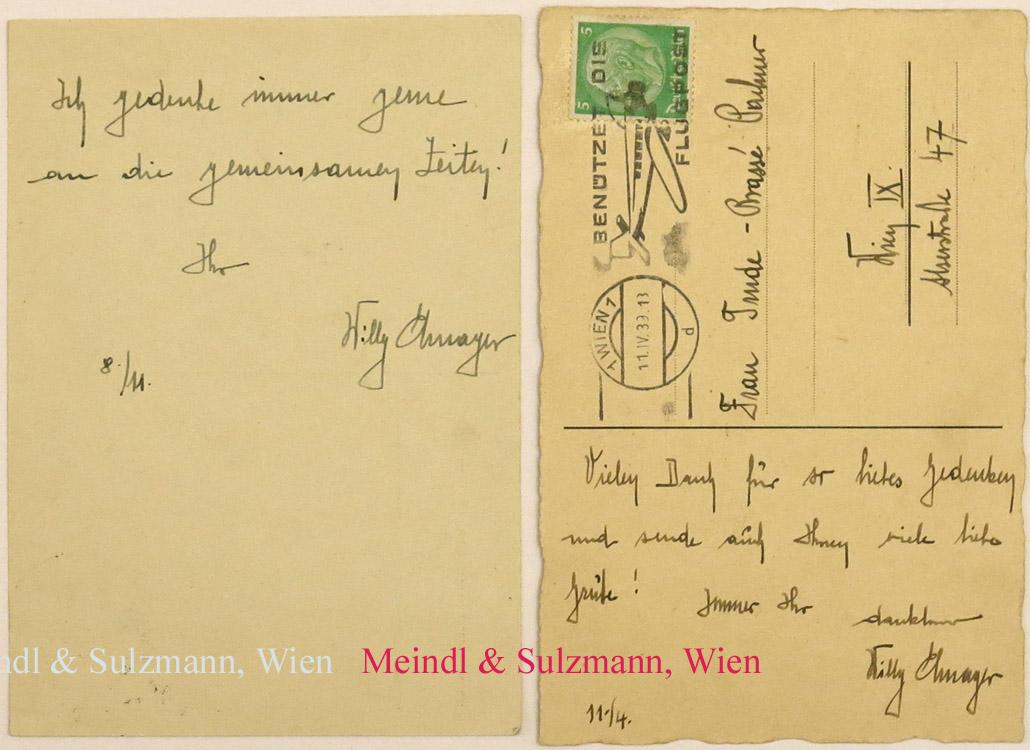 Ich gedenke immer gerne
an die gemeinsamen Zeiten!
Ihr
Willy Elmayer
8./11.
5
5
BENÜTZET DIE
FLUGPOST
1 WIEN 1
11.IV.39.13
d
Frau Trude - Brassé - Pachner
Wien IX.
Alserstraße 47
Vielen Dank für Ihr liebes Gedenken
und sende auch Ihnen viele liebe
Grüße!
Immer Ihr
dankbarer
Willy Elmayer
11./4.
ndl & Sulzmann, Wien
Meindl & Sulzmann, Wien